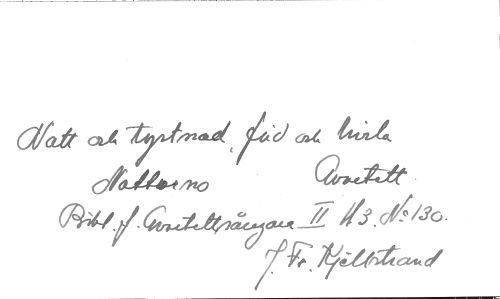 Natt och tystnad, frid och hvila
Notturno Qvartett.
Bibl. f. Qvartettsångare II H3. No 130.
J. Fr. Kjellstrand